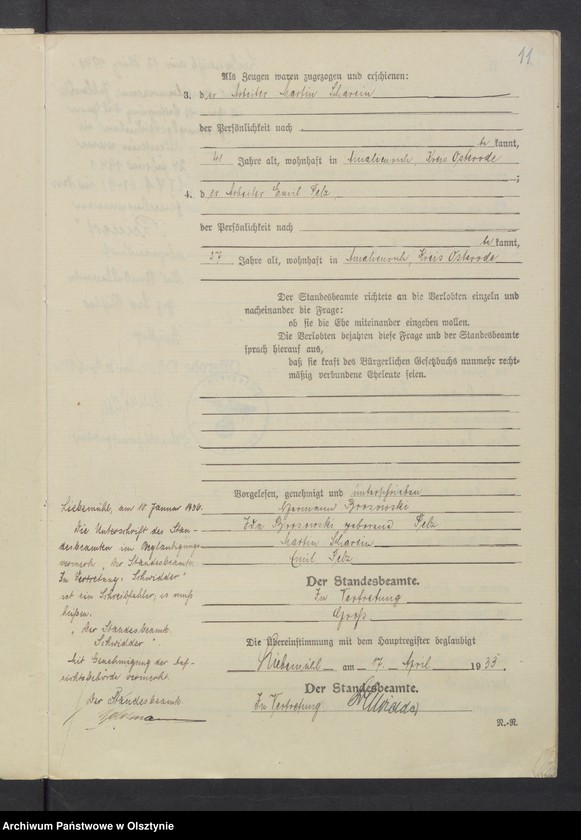 11
Als Zeugen waren zugezogen und erschienen:
3. der Arbeiter Martin Scharein
der Persönlichkeit nach
be kannt,
41 Jahre alt, wohnhaft in Amalienruh, Kreis Osterode
;
4. der Arbeiter Emil Pelz
der Persönlichkeit nach
be kannt,
37 Jahre alt, wohnhaft in Amalienruh, Kreis Osterode
Der Standesbeamte richtete an die Verlobten einzeln und
nacheinander die Frage:
ob sie die Ehe miteinander eingehen wollen.
Die Verlobten bejahten diese Frage und der Standesbeamte
sprach hierauf aus,
daß sie kraft des Bürgerlichen Gesetzbuchs nunmehr recht-
mäßig verbundene Eheleute seien.
Vorgelesen, genehmigt und unterschrieben
Hermann Brosowski
Ida Brosowski geborene Pelz
Martin Scharein
Emil Pelz
Der Standesbeamte.
In Vertretung
Groß
Die Übereinstimmung mit dem Hauptregister beglaubigt
Liebemühl, am 17. April 1935.
Der Standesbeamte.
In Vertretung
N.-R.
Liebemühl, am 18. Januar 1936.
Die Unterschrift des Stan-
desbeamten im Beglaubigungs-
vermerk „Der Standesbeamte.
In Vertretung: Schwidder"
ist ein Schreibfehler; es muß
heißen:
„Der Standesbeamte.
Schwidder".
Mit Genehmigung der Auf-
sichtsbehörde vermerkt.
Der Standesbeamte.
Archiwum Państwowe w Olsztynie